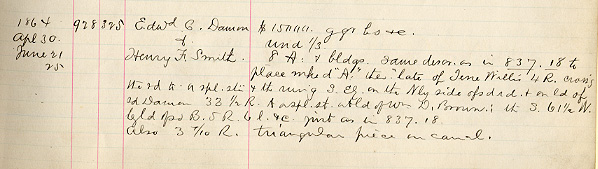 1864 928 325 Edwd C. Damon $1500. ggr bs &c.
Apl 30. & und 1/3
June 21 Henry F. Smith. 8 A. & bldgs. same descr. as in 837.18 to
25 place mked "A" the "late of Wille 4 R. cross'g
the rd to a spl. sti & th run'g on the Nly side of sd rd. & on ld of
sd Damon 33 1/2 R. to a spl. st. at ld of Wm D. Brown; th S. 61 1/2 W.
by ld of sd B. 5 R. 6 l. &c. just as in 837.18.
Also 3 7/10 R. triangular piece on canal.